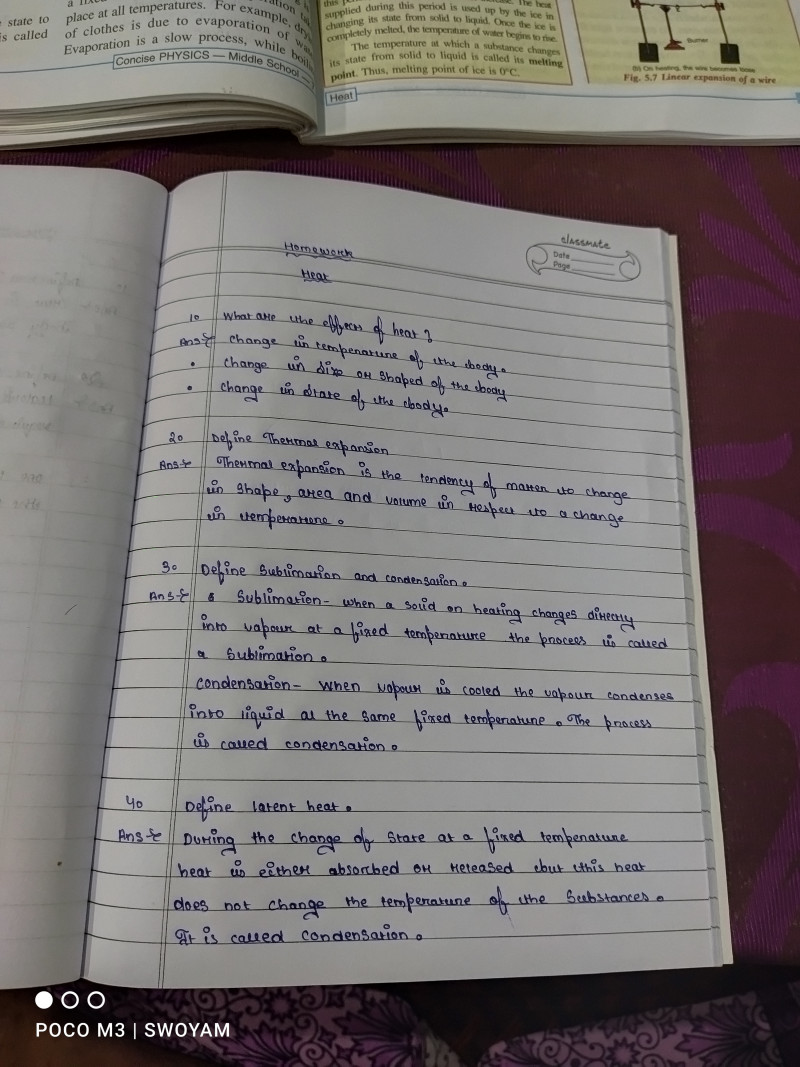 state to
is called
place at all temperatures. For example, dry
of clothes is due to evaporation of wa
Evaporation is a slow process, while boil
Concise PHYSICS — Middle School
supplied during this period is used up by the ice in
changing its state from solid to liquid. Once the ice is
completely melted, the temperature of water begins to rise.
The temperature at which a substance changes
its state from solid to liquid is called its melting
point. Thus, melting point of ice is 0°C.
Heat
Burner
(b) On heating, the wire becomes loose
Fig. 5.7 Linear expansion of a wire
classmate
Date
Page
Homework
Heat
1o What are the effects of heat?
Ans:- change in temperature of the body.
• change in size or shaped of the body
• change in state of the body.
2o Define Thermal expansion
Ans:- Thermal expansion is the tendency of matter to change
in shape, area and volume in respect to a change
in temperature.
3o Define Sublimation and condensation.
Ans:- Sublimation- when a solid on heating changes directly
into vapour at a fixed temperature the process is called
a Sublimation.
condensation- when vapour is cooled the vapour condenses
into liquid at the same fixed temperature. The process
is called condensation.
4o Define latent heat.
Ans:- During the change of state at a fixed temperature
heat is either absorbed or released but this heat
does not change the temperature of the Substances.
It is called condensation.
POCO M3 | SWOYAM